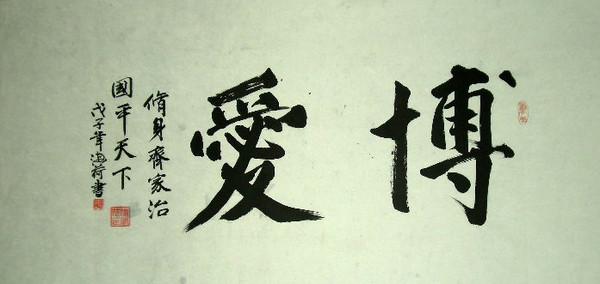 博愛
脩身齊家治
國平天下
戊子年海荷書